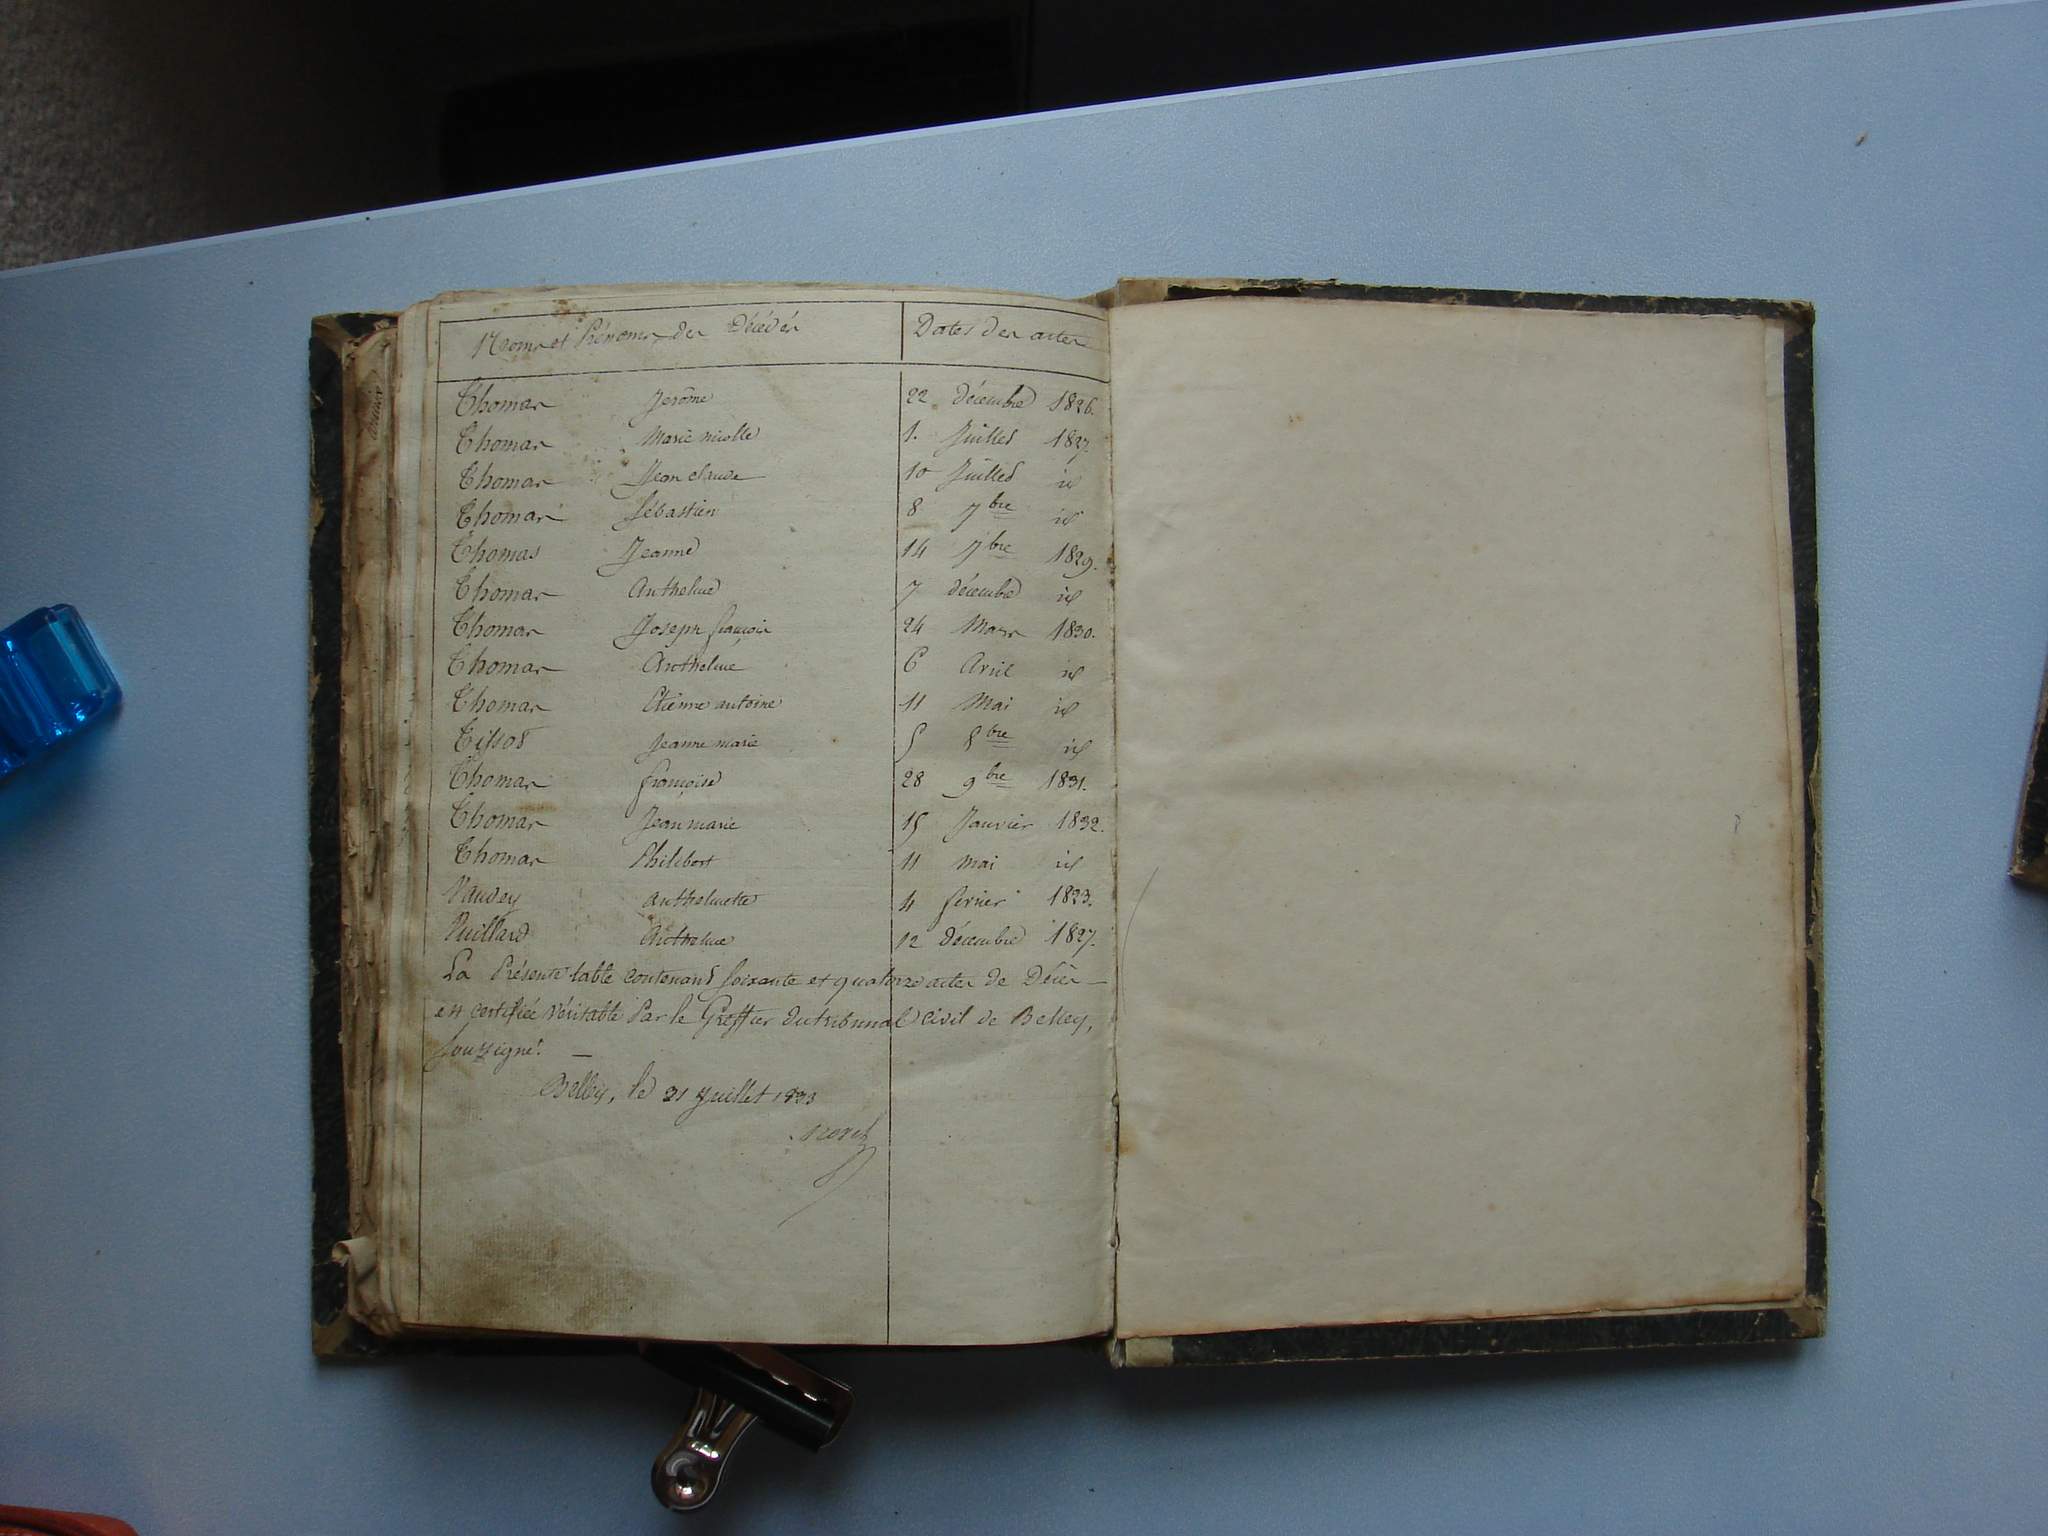 Noms et Prénoms des Décédés Dates des actes
Thomas Jerôme 22 décembre 1826.
Thomas Marie nicolle 1. Juillet 1827.
Thomas Jean claude 10 Juillet id
Thomas Sébastien 8 7bre id
Thomas Jeanne 14 7bre 1829.
Thomas Anthelme 7 décembre id
Thomas Joseph françois 24 Mars 1830.
Thomas Anthelme 6 Avril id
Thomas Etiènne antoine 11 Mai id
Tissot Jeanne marie 5 8bre id
Thomas françoise 28 9bre 1831.
Thomas Jean marie 15 Janvier 1832.
Thomas Philibert 11 mai id
Vaudey anthelmette 4 février 1823.
Vuillard Anthelme 12 décembre 1827.
La Présente table contenant soixante et quatorze actes de Décès
est certifiée véritable Par le Greffier du tribunal civil de Belley,
soussigné.
Belley, le 31 Juillet 1833